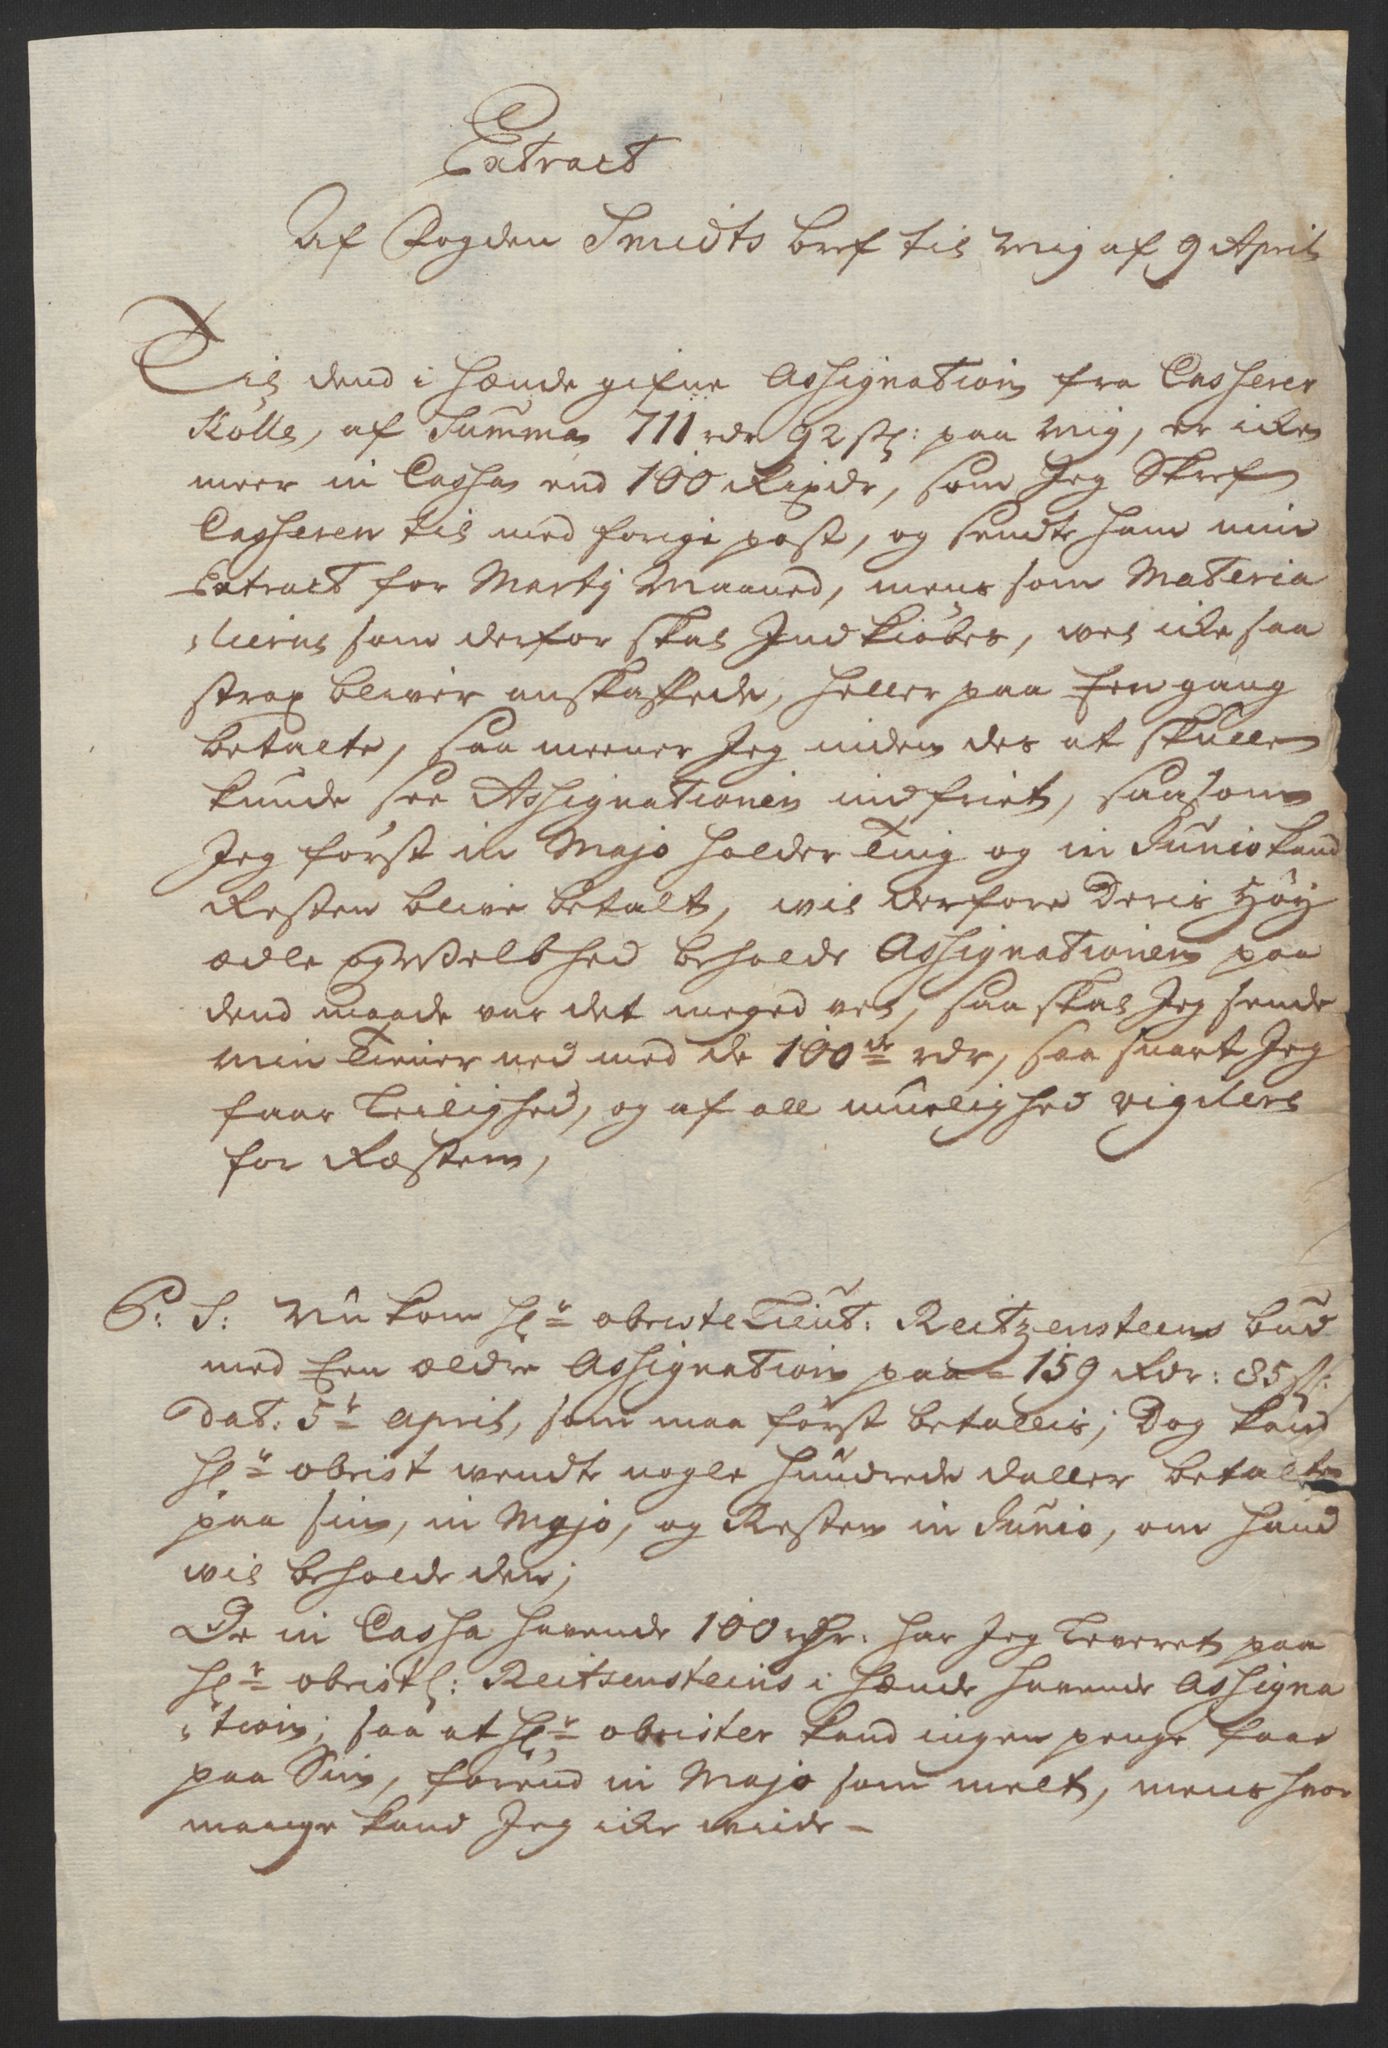 Extract
Af Fogden Smidts bref til mig af 9 April
Til dend i hænde gifne Assignation fra Casserer
Kölle, af Summa 711 rdr 92 sk: paa mig, er icke
meer in Cassa end 100 Rixdr, som Jeg Skref
Casseren til med forige post, og sendte ham min
Extract for Marty Maaned, mens som Materia
-lierne som derfor skal Indkiöbes, vel icke saa
strax bliver anskaffede, heller paa Een gang
betalte, saa meener Jeg inden des at skulle
kunde see Assignationen indfriet, saasom
Jeg först in Majo holder Ting og in Junio kand
Resten blive betalt, wil derfore Deris Höy
ædle og Welbhed beholde Assignationen paa
dend maade var det meged vel, saa skal Jeg sende
min Tiener ned med de 100de rdr, saa snart Jeg
faar Leilighed, og af all muelighed vigilere
for Ræsten,
P: S: Nu kom Hr obriste Lieut: Reitzensteins bud
med Een ældre Assignation paa 159 Rdr: 85 sk:
Dat: 5r April, som maa först betallis; Dog kand
Hr obrist wendte nogle hundrede daller betalte
paa sin, in Majo, og Resten in Junio, om hand
wil beholde den;
De in Cassa havende 100 rdr: har Jeg Leveret paa
Hr obristl: Reitzensteins i hænde havende Assigna
-tion; saa at Hr obrister kand ingen penge faae
paa Sin, förend in Majo som melt, mens hvor
mange kand Jeg icke viide